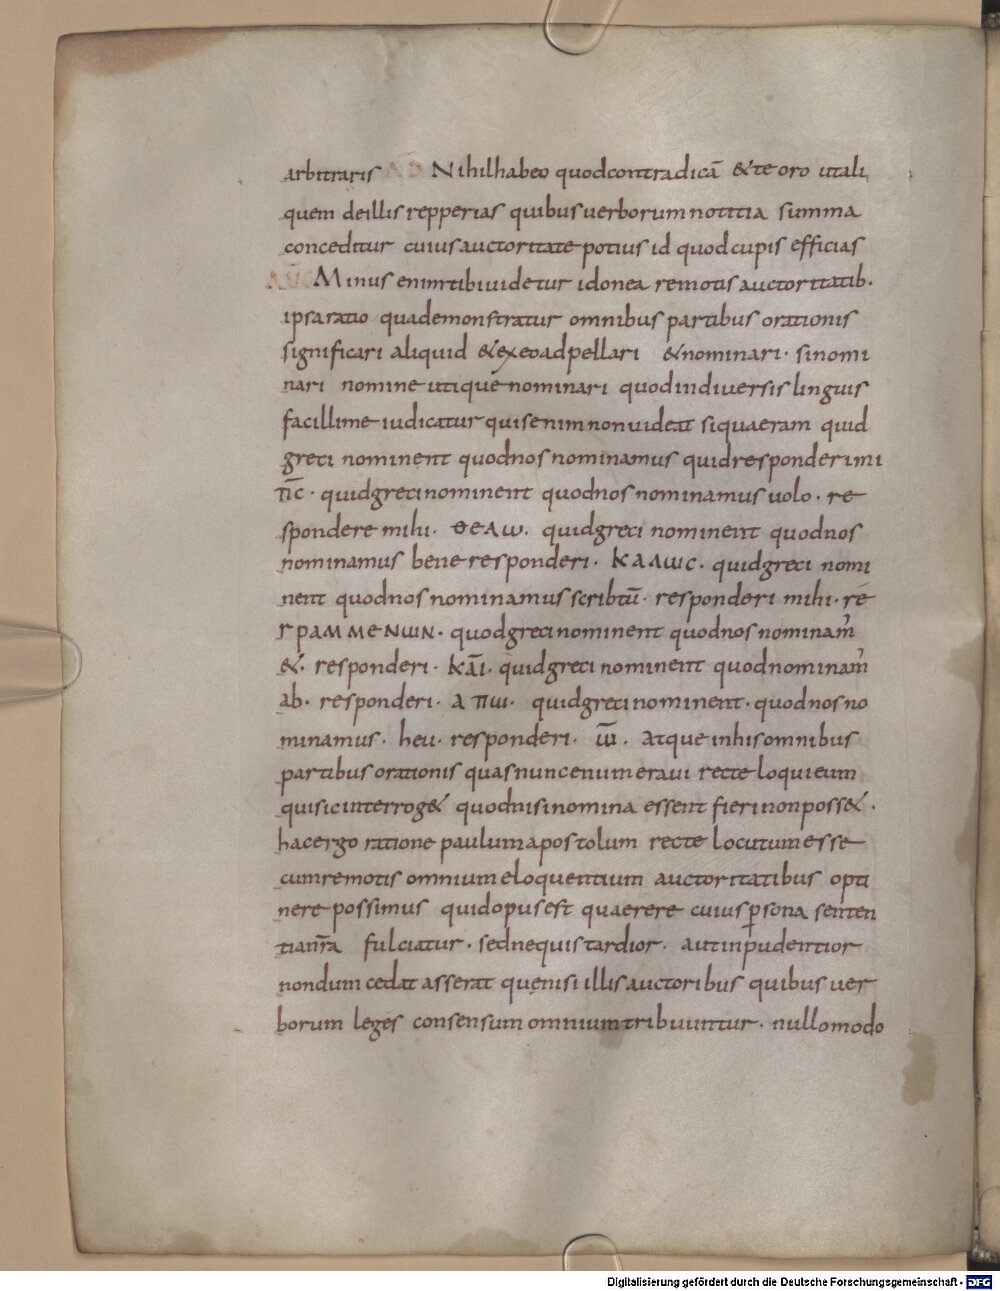 arbitraris AD Nihilhabeo quodcontradicā &te oro utali
quem deillis repperias quibusuerborumnotitia summa
conceditur cuiusauctoritate potius id quodcupis efficias
AUG Minus enimtibiuidetur idonea remotis auctoritatib·
ipsaratio quademonstratur omnibus partibus orationis
significari aliquid &exeoadpellari &nominari· sinomi
nari nomine utique nominari quodindiuersis linguis
facillime iudicatur quisenimnonuideat siquaeram quid
greci nominent quodnos nominamus quidresponderimi
ΤΙC· quidgrecinominent quodnosnominamus uolo· re
spondere mihi· ΘΕΛω. quidgreci nominent quodnos
nominamus bene responderi· ΚΑΛωC· quidgreci nomi
nent quodnos nominamus scribtū· responderi mihi· re
ΓΡΑΜΜΕΝωΝ· quodgrecinominent quodnos nominam̄
&· responderi· ΚΑΙ· quidgreci nominent quodnominam̄
ab· responderi· ΑΠω· quidgrecinominent· quodnosno
minamus· heu· responderi· ω̄. Atque inhisomnibus
partibus orationis quasnuncenumeraui recte loquieum
quisicinterrog& quodnisinomina essent fierinonposs&·
hacergo ratione paulumapostolum recte locutumesse
cumremotis omniumeloquentium auctoritatibus opti
nere possimus quidopusest quaerere cuiusp̄sona senten
tianr̄a fulciatur· sednequistardior· autinpudentior
nondum cedat asserat quenisi illis auctoribus quibus uer
borum leges consensumomniumtribuuntur· nullomodo
Digitalisierung gefördert durch die Deutsche Forschungsgemeinschaft - DFG